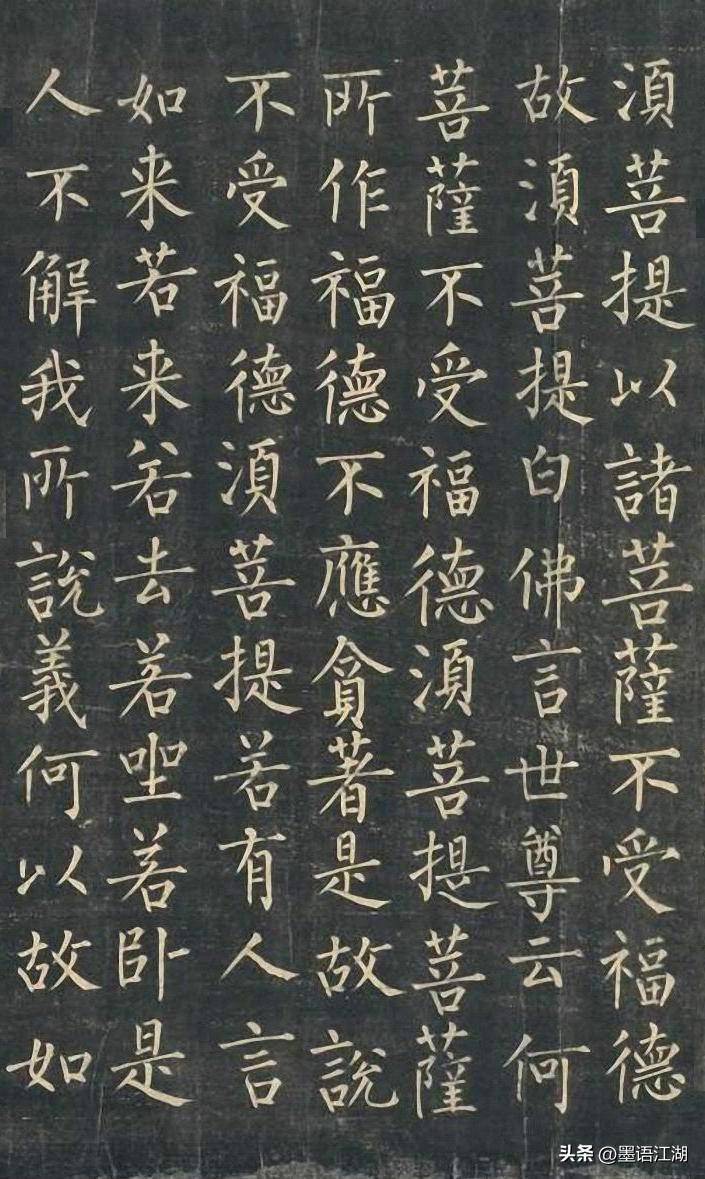 湏菩提以諸菩薩不受福德
故湏菩提白佛言世尊云何
菩薩不受福德湏菩提菩薩
所作福德不應貪著是故說
不受福德湏菩提若有人言
如来若来若去若坐若卧是
人不解我所說義何以故如
头条 @墨语江湖